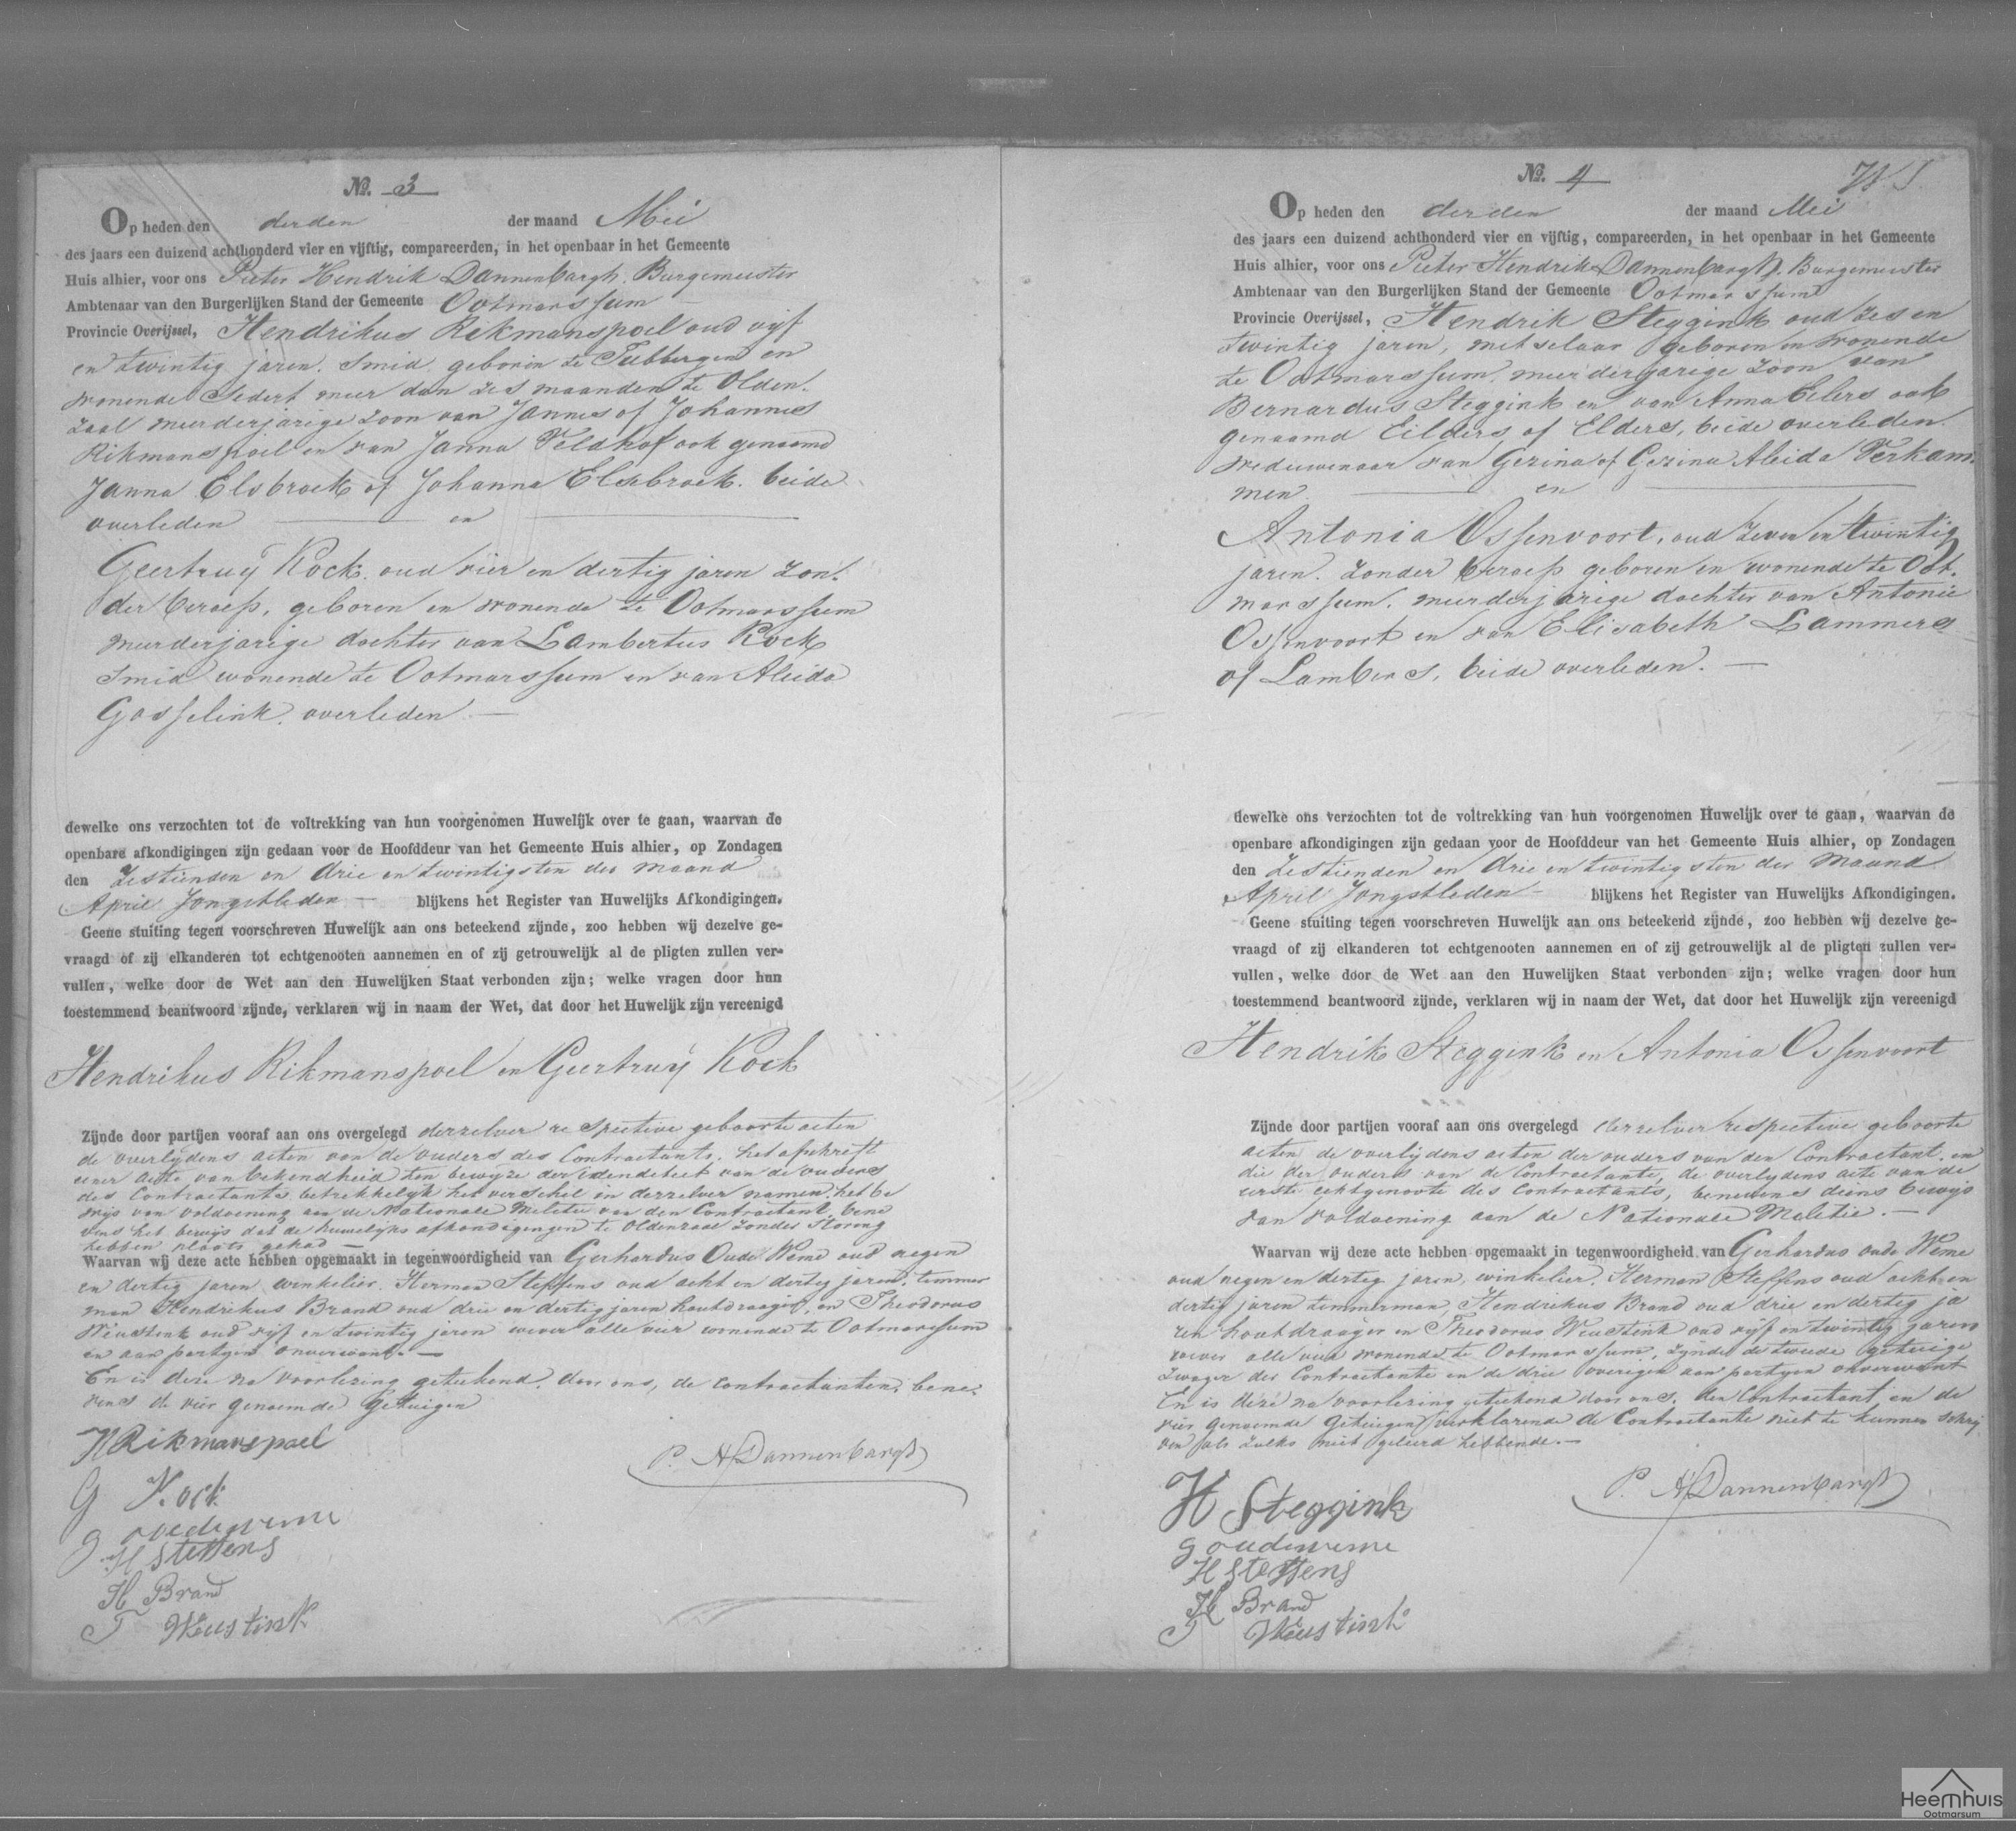 No. 3
Op heden den derden der maand Mei
des jaars een duizend achthonderd vier en vijftig, compareerden, in het openbaar in het Gemeente
Huis alhier, voor ons Pieter Hendrik Dannenbargh. Burgemeester
Ambtenaar van den Burgerlijken Stand der Gemeente Ootmarssum
Provincie Overijssel, Hendrikus Rikmanspoel oud vijf
en twintig jaren. Smid. geboren te Tubbergen en
wonende sedert meer dan zes maanden te Olden.
zaal meerderjarige zoon van Jannes of Johannes
Rikmanspoel en van Janna Veldhof ook genaamd
Janna Elsbroek of Johanna Elsebroek. beide
overleden — en —
Geertruy Kock. oud vier en dertig jaren zon.
der beroep, geboren en wonende te Ootmarssum
meerderjarige dochter van Lambertus Kock
Smid wonende te Ootmarssum en van Aleida
Gosselink. overleden —
dewelke ons verzochten tot de voltrekking van hun voorgenomen Huwelijk over te gaan, waarvan de
openbare afkondigingen zijn gedaan voor de Hoofddeur van het Gemeente Huis alhier, op Zondagen
den Zestienden en drie en twintigsten der maand
April Jongstleden — blijkens het Register van Huwelijks Afkondigingen.
Geene stuiting tegen voorschreven Huwelijk aan ons beteekend zijnde, zoo hebben wij dezelve ge-
vraagd of zij elkanderen tot echtgenooten aannemen en of zij getrouwelijk al de pligten zullen ver-
vullen, welke door de Wet aan den Huwelijken Staat verbonden zijn; welke vragen door hun
toestemmend beantwoord zijnde, verklaren wij in naam der Wet, dat door het Huwelijk zijn vereenigd
Hendrikus Rikmanspoel en Geertruy Kock
Zijnde door partijen vooraf aan ons overgelegd derzelver respective geboorte acten
de overlydens acten van de ouders des Contractants. het afschrift
eener acte van bekendheid ten bewyze der idendeteit van de ouders
des Contractants betrekkelyk het verschil in derzelver namen, het be
wijs van voldoening aan de Nationale Militie van den Contractant, bene
vens het bewijs dat de huwelijks afkondigingen te Oldenzaal zonder storing
hebben plaats gehad —
Waarvan wij deze acte hebben opgemaakt in tegenwoordigheid van Gerhardus Oude Weme oud negen
en dertig jaren winkelier. Herman Steffens oud acht en dertig jaren, timmer
man Hendrikus Brand oud drie en dertig jaren houtdraager, en Theodorus
Weustink oud vijf en twintig jaren wever alle vier wonende te Ootmarssum
en aan partyen onverwant. —
En is deze na voorlezing geteekend. door ons, de contractanten, bene.
vens de vier genoemde getuigen
HRikmanspoel
P. HDannenbargh
G Kock
g oudeweme
H Steffens
H Brand
T Weustink
No. 4
Op heden den derden der maand Mei
des jaars een duizend achthonderd vier en vijftig, compareerden, in het openbaar in het Gemeente
Huis alhier, voor ons Pieter Hendrik Dannenbargh. Burgemeester
Ambtenaar van den Burgerlijken Stand der Gemeente Ootmarssum
Provincie Overijssel, Hendrik Steggink oud zes en
twintig jaren, metselaar geboren en wonende
te Ootmarssum. meerderjarige zoon van
Bernardus Steggink en van Anna Eilers ook
genaamd Eilders of Elders, beide overleden.
weduwenaar van Gezina of Gezina Aleida Verkam.
men — en —
Antonia Ossenvoort, oud zeven en twintig
jaren. zonder beroep geboren en wonende te Oot.
marssum. meerderjarige dochter van Antonie
Ossenvoort en van Elisabeth Lammers
of Lambers, beide overleden. —
dewelke ons verzochten tot de voltrekking van hun voorgenomen Huwelijk over te gaan, waarvan de
openbare afkondigingen zijn gedaan voor de Hoofddeur van het Gemeente Huis alhier, op Zondagen
den Zestienden en drie en twintigsten der maand
April Jongstleden — blijkens het Register van Huwelijks Afkondigingen.
Geene stuiting tegen voorschreven Huwelijk aan ons beteekend zijnde, zoo hebben wij dezelve ge-
vraagd of zij elkanderen tot echtgenooten aannemen en of zij getrouwelijk al de pligten zullen ver-
vullen, welke door de Wet aan den Huwelijken Staat verbonden zijn; welke vragen door hun
toestemmend beantwoord zijnde, verklaren wij in naam der Wet, dat door het Huwelijk zijn vereenigd
Hendrik Steggink en Antonia Ossenvoort
Zijnde door partijen vooraf aan ons overgelegd derzelver respective geboorte
acten de overlydens acten der ouders van den Contractant en
die der ouders van de Contractante, de overlydens acte van de
eerste echtgenoote des Contractants, benevens diens bewijs
van voldoening aan de Nationale Militie. —
Waarvan wij deze acte hebben opgemaakt in tegenwoordigheid van Gerhardus oude Weme
oud negen en dertig jaren, winkelier, Herman Steffens oud acht en
dertig jaren timmerman, Hendrikus Brand oud drie en dertig ja
ren houtdraager en Theodorus Weustink oud vijf en twintig jaren
wever alle vier wonende te Ootmarssum, zynde de tweede getuige
zwager der Contractante en de drie overigen aan partyen onverwant
En is deze na voorlezing geteekend door ons. den Contractant en de
vier genoemde getuigen verklarende de Contractante niet te kunnen schrij
ven als zulks niet geleerd hebbende. —
H Steggink
P. HDannenbargh
g oudeweme
H Steffens
H Brand
T Weustink
Heemhuis
Ootmarsum